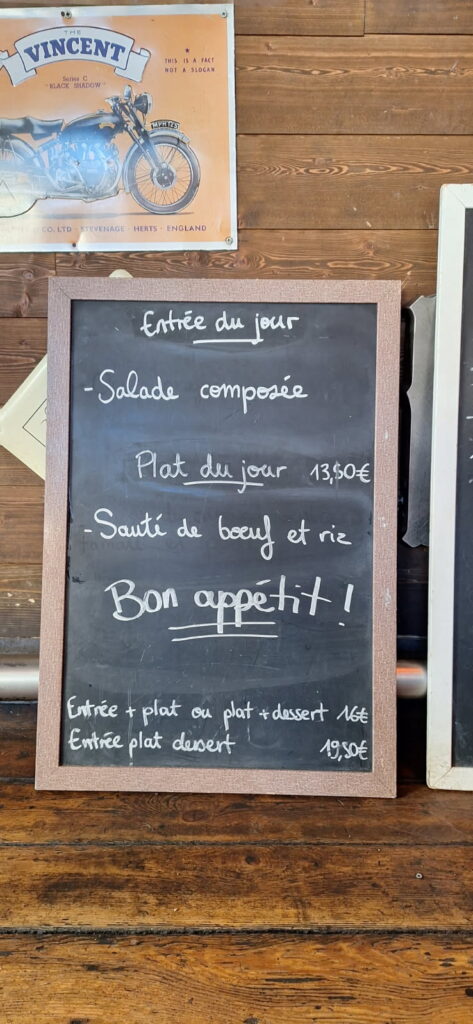 THE
VINCENT
Series C
"BLACK SHADOW"
THIS IS A FACT
NOT A SLOGAN
CO. LTD · STEVENAGE · HERTS · ENGLAND
Entrée du jour
- Salade composée
Plat du jour 13,50€
- Sauté de boeuf et riz
Bon appétit !
Entrée + plat ou plat + dessert 16€
Entrée plat dessert 19,50€